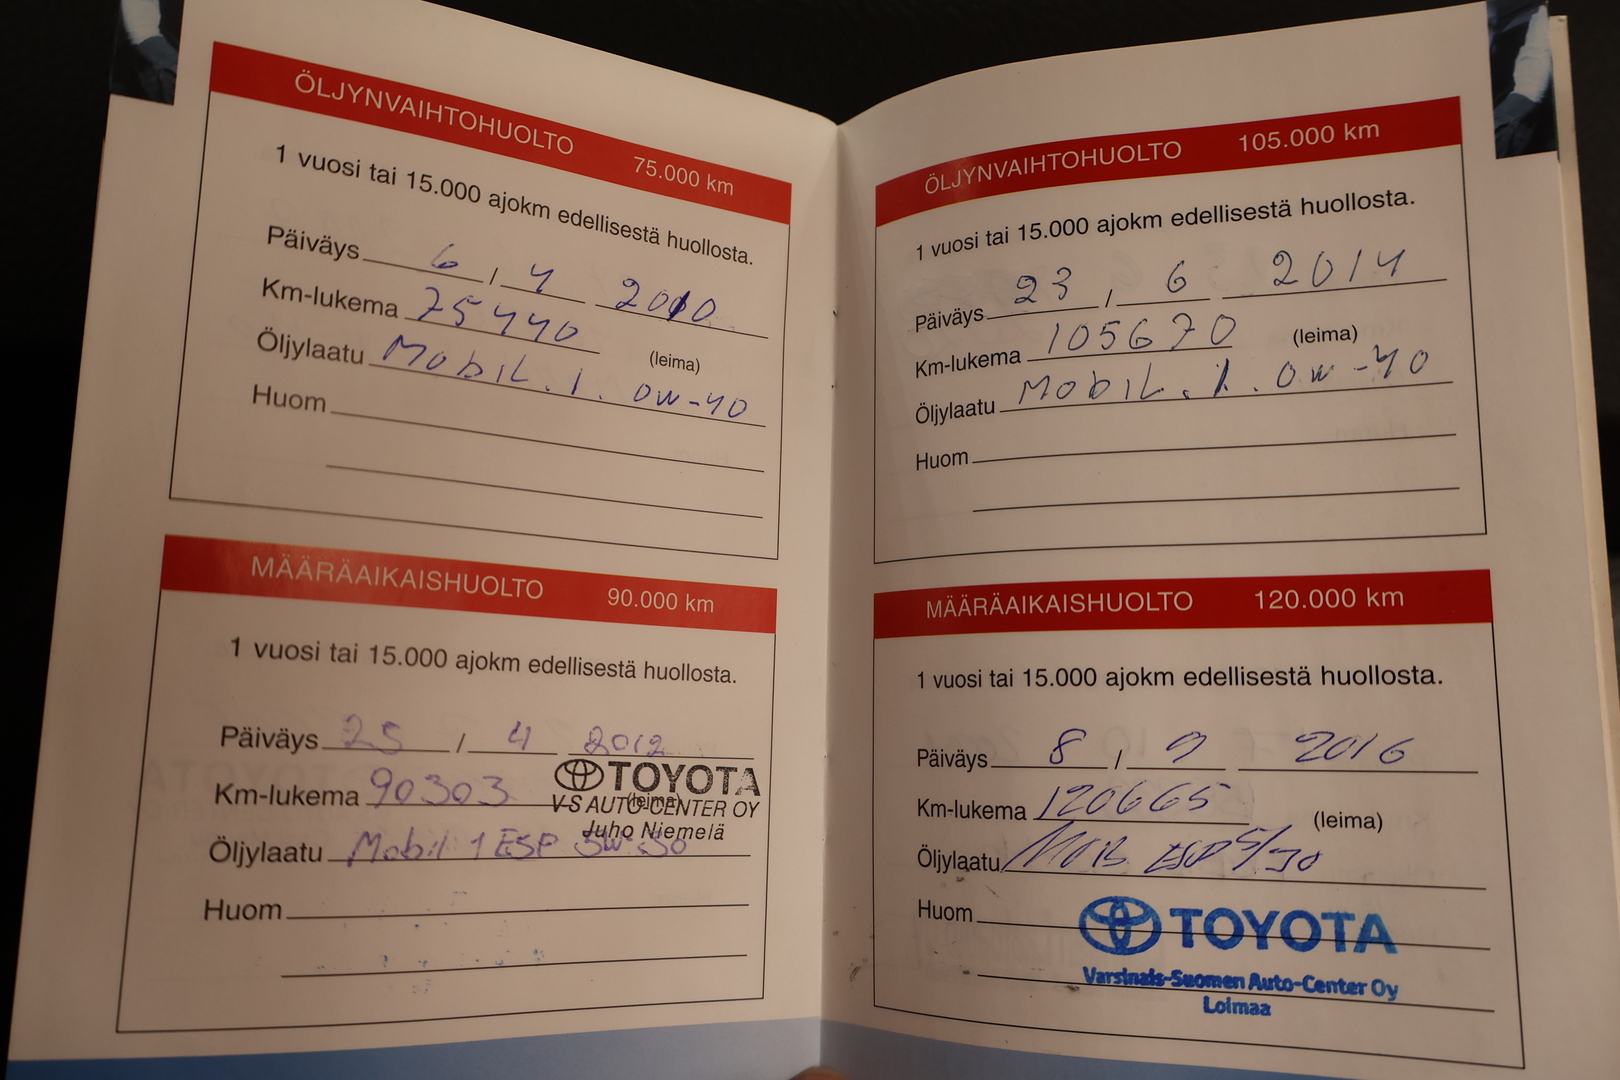 ÖLJYNVAIHTOHUOLTO 75.000 km
1 vuosi tai 15.000 ajokm edellisestä huollosta.
Päiväys 6 / 4 2010
Km-lukema 75440
(leima)
Öljylaatu MobiL. 1. 0W-40
Huom
MÄÄRÄAIKAISHUOLTO 90.000 km
1 vuosi tai 15.000 ajokm edellisestä huollosta.
Päiväys 25 / 4 2012
TOYOTA
Km-lukema 90303 (leima)
V-S AUTO-CENTER OY
Juho Niemelä
Öljylaatu Mobil 1 ESP 5W-30
Huom
ÖLJYNVAIHTOHUOLTO 105.000 km
1 vuosi tai 15.000 ajokm edellisestä huollosta.
Päiväys 23 / 6 2014
Km-lukema 105670 (leima)
Öljylaatu MobiL. 1. 0W-40
Huom
MÄÄRÄAIKAISHUOLTO 120.000 km
1 vuosi tai 15.000 ajokm edellisestä huollosta.
Päiväys 8 / 9 2016
Km-lukema 120665 (leima)
Öljylaatu MOB ESP 5/30
Huom
TOYOTA
Varsinais-Suomen Auto-Center Oy
Loimaa